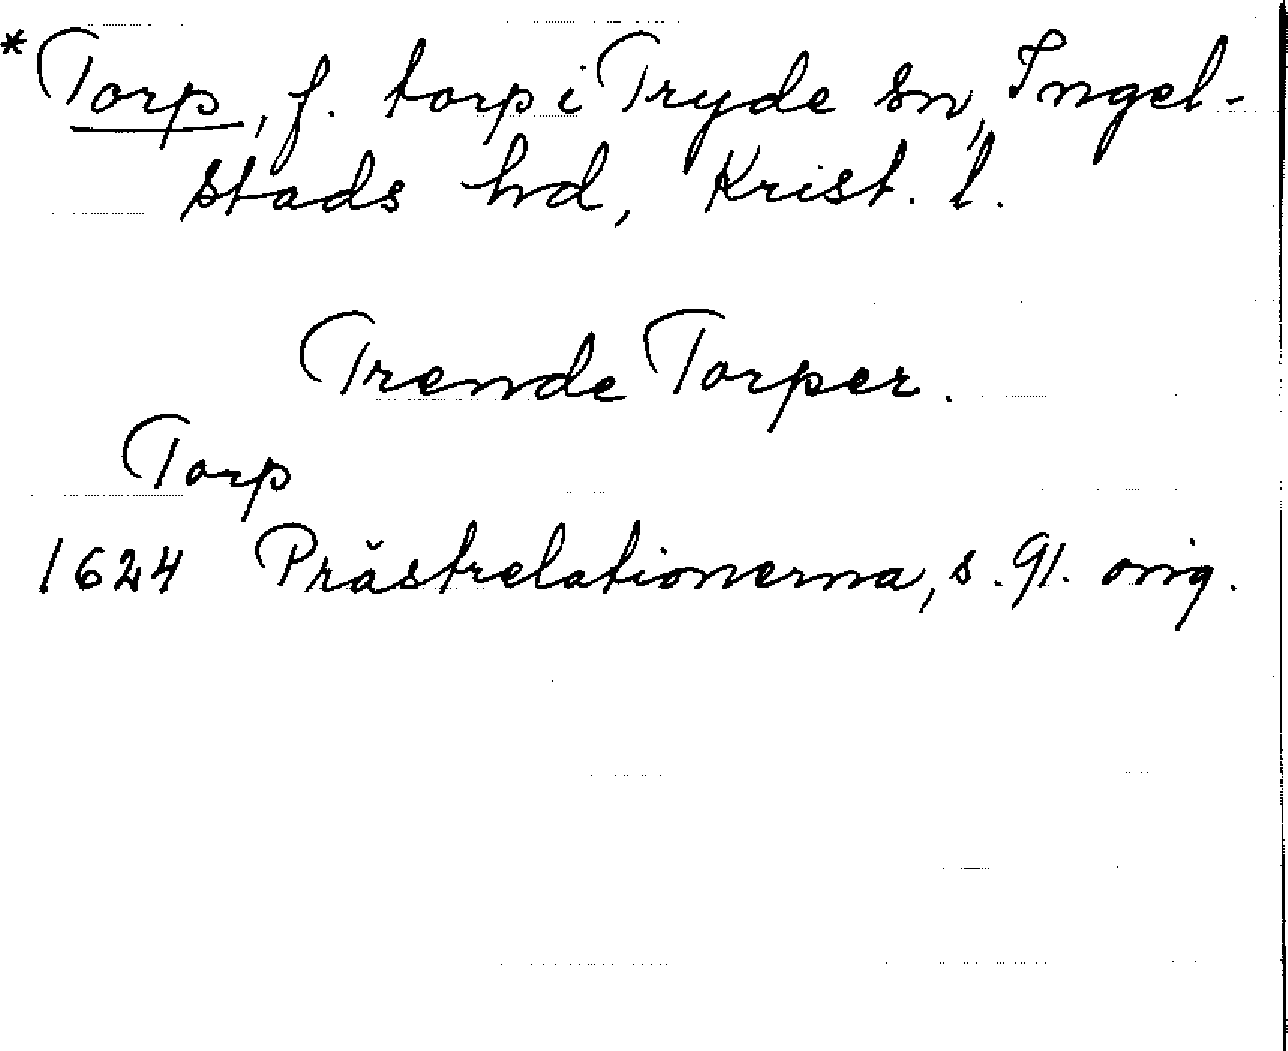 *Torp, f. torp i Tryde sn, Ingel-
stads hd, Krist. l.
Trende Torper.
Torp
1624 Prästrelationerna, s. 91. orig.